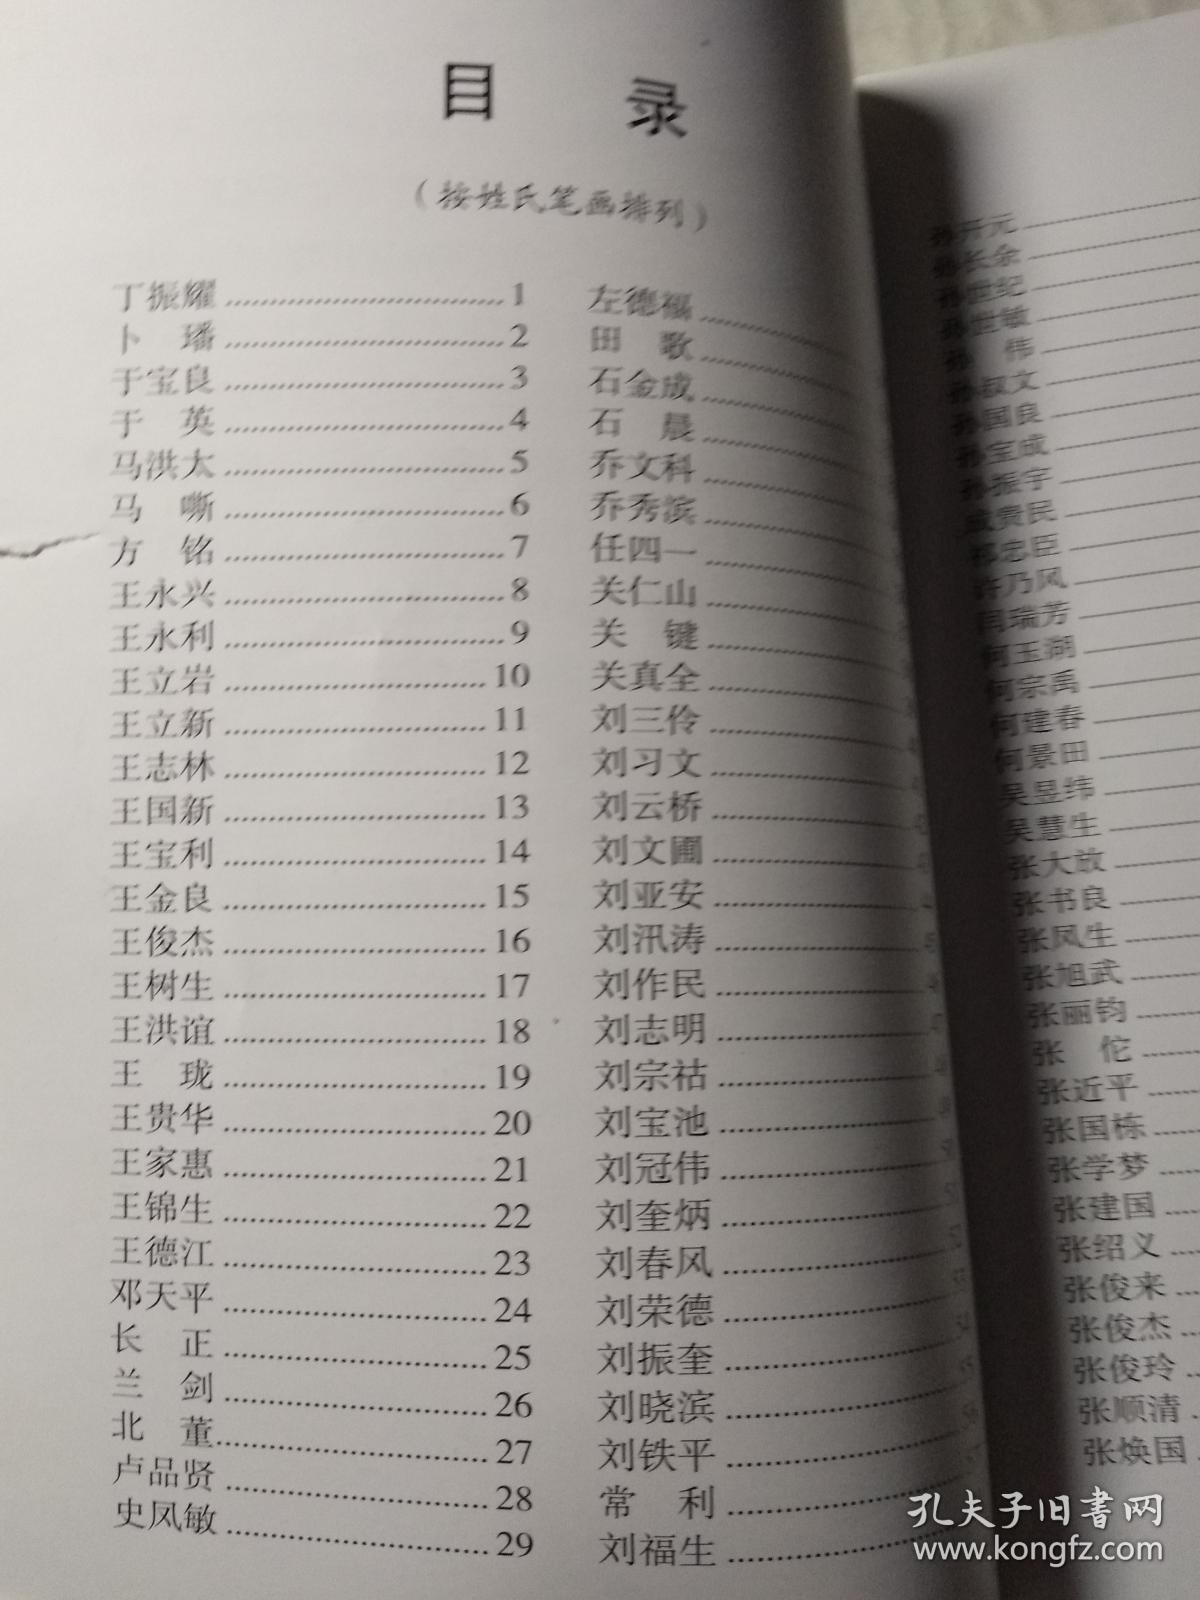 目 录
(按姓氏笔画排列)
丁振耀 1
卜 璠 2
于宝良 3
于 英 4
马洪太 5
马 嘶 6
方 铭 7
王永兴 8
王永利 9
王立岩 10
王立新 11
王志林 12
王国新 13
王宝利 14
王金良 15
王俊杰 16
王树生 17
王洪谊 18
王 珑 19
王贵华 20
王家惠 21
王锦生 22
王德江 23
邓天平 24
长 正 25
兰 剑 26
北 董 27
卢品贤 28
史凤敏 29
左德福
田 歌
石金成
石 晨
乔文科
乔秀滨
任四一
关仁山
关 键
关真全
刘三伶
刘习文
刘云桥
刘文圃
刘亚安
刘汛涛
刘作民
刘志明
刘宗祜
刘宝池
刘冠伟
刘奎炳
刘春风
刘荣德
刘振奎
刘晓滨
刘铁平
常 利
刘福生
孙开元
孙长余
孙世纪
孙世敏
孙 伟
孙叔文
孙国良
孙宝成
孙振宇
贵民
祁忠臣
许乃风
闫瑞芳
何玉湖
何宗禹
何建春
何景田
吴昱纬
吴慧生
张大放
张书良
张凤生
张旭武
张丽钧
张 佗
张近平
张国栋
张学梦
张建国
张绍义
张俊来
张俊杰
张俊玲
张顺清
张焕国
孔夫子旧书网
www.kongfz.com